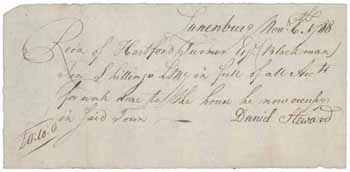 Lunenburg Nov. 6
Recd of Hartford Turner Esq Blackman
Ten Shillings LMy in full of all Accts
for work done to the house he now occupy
in said Town — Daniel Steward